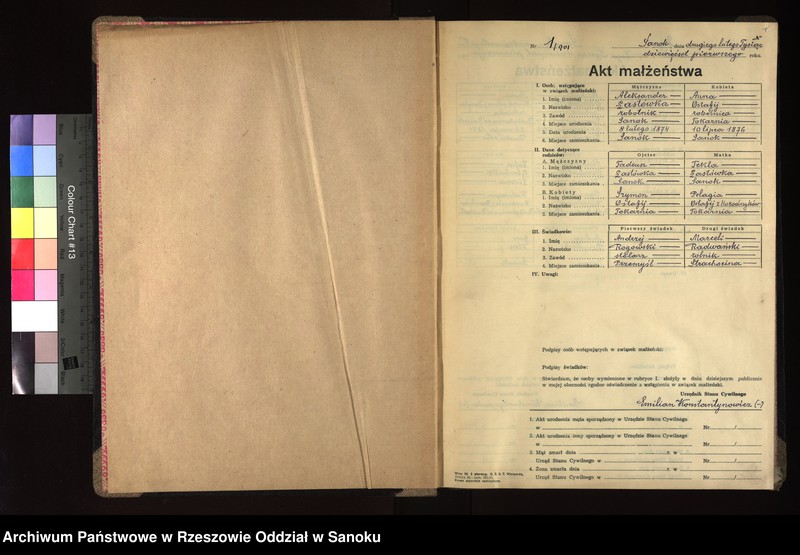 Nr 1/1901 Sanok dnia drugiego lutego Tysiąc
dziewięćset pierwszego roku
Akt małżeństwa
I. Osoby wstępujące w związek małżeński: Mężczyzna Kobieta
1. Imię (imiona) Aleksander Anna
2. Nazwisko Zasłówka Ostafij
3. Zawód robotnik robotnica
4. Miejsce urodzenia Sanok Tokarnia
5. Data urodzenia 8 lutego 1874 10 lipca 1876
6. Miejsce zamieszkania Sanok Sanok
II. Dane dotyczące rodziców: Ojciec Matka
A. Mężczyzny
1. Imię (imiona) Tadeusz Tekla
2. Nazwisko Zasłówka Zasłówka
3. Miejsce zamieszkania Sanok Sanok
B. Kobiety
1. Imię (imiona) Szymon Pelagia
2. Nazwisko Ostafij Ostafij z
3. Miejsce zamieszkania Tokarnia Tokarnia
III. Świadkowie: Pierwszy świadek Drugi świadek
1. Imię Andrzej Marceli
2. Nazwisko Rogowski Radwański
3. Zawód stolarz rolnik
4. Miejsce zamieszkania Przemyśl Strachocina
IV. Uwagi:
Podpisy osób wstępujących w związek małżeński:
Podpisy świadków:
Stwierdzam, że osoby wymienione w rubryce I. złożyły w dniu dzisiejszym publicznie
w mojej obecności zgodne oświadczenie o wstąpieniu w związek małżeński.
Urzędnik Stanu Cywilnego
Emilian Konstantynowicz (-)
1. Akt urodzenia męża sporządzony w Urzędzie Stanu Cywilnego
w Nr /
2. Akt urodzenia żony sporządzony w Urzędzie Stanu Cywilnego
w Nr /
3. Mąż zmarł dnia r. w
Urząd Stanu Cywilnego w Nr /
4. Żona zmarła dnia r. w
Urząd Stanu Cywilnego w Nr /
Colour Chart #13
Archiwum Państwowe w Rzeszowie Oddział w Sanoku